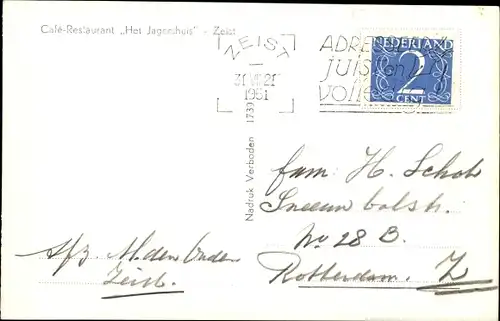 Café-Restaurant „Het Jagershuis" - Zeist
ZEIST
31 VII 21
1951
ADRES
JUIST en
VOLL
NEDERLAND
2
CENT
Nadruk Verboden 1739
fam. H. Schol
Sneeuwbalstr.
No 28 B.
Rotterdam. Z
afz. M. den Ouden
Zeist.